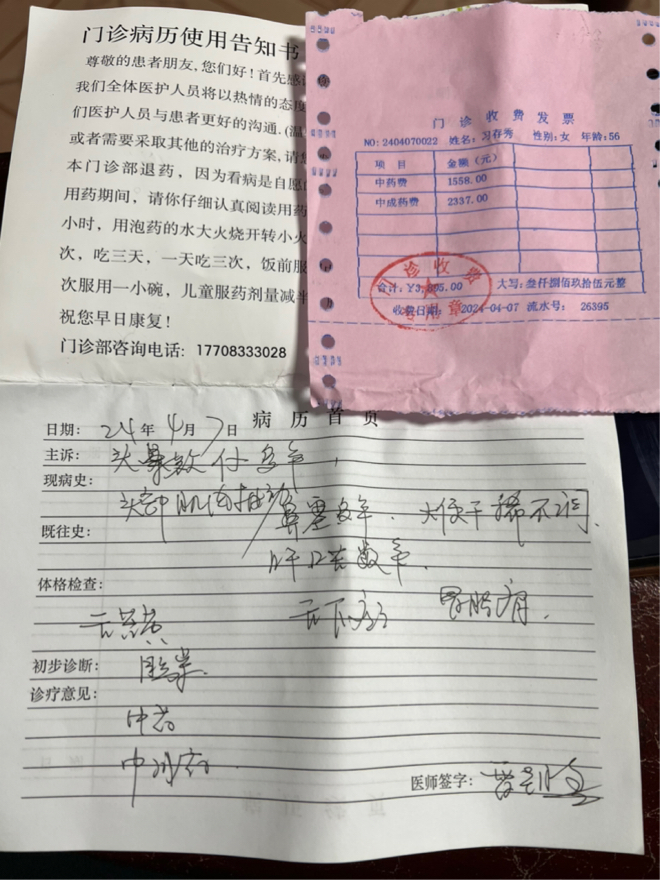 门诊病历使用告知书
尊敬的患者朋友,您们好!首先感
我们全体医护人员将以热情的态度
们医护人员与患者更好的沟通.(温
或者需要采取其他的治疗方案,请您
本门诊部退药，因为看病是自愿
用药期间，请你仔细认真阅读用药
小时，用泡药的水大火烧开转小火
次，吃三天，一天吃三次，饭前服
次服用一小碗，儿童服药剂量减半
祝您早日康复!
门诊部咨询电话: 17708333028
门诊收费发票
NO:2404070022 姓名:习存秀 性别:女 年龄:56
项目 金额(元)
中药费 1558.00
中成药费 2337.00
合计:¥3,895.00 大写:叁仟捌佰玖拾伍元整
收费日期: 2024-04-07 流水号: 26395
门诊收费
专用章
病历首页
日期: 24年4月7日
主诉: 头晕数
现病史:
头部
鼻塞多年. 大便干稀不调.
既往史:
数年.
体格检查:
初步诊断:
诊疗意见:
中药
中成药
医师签字: